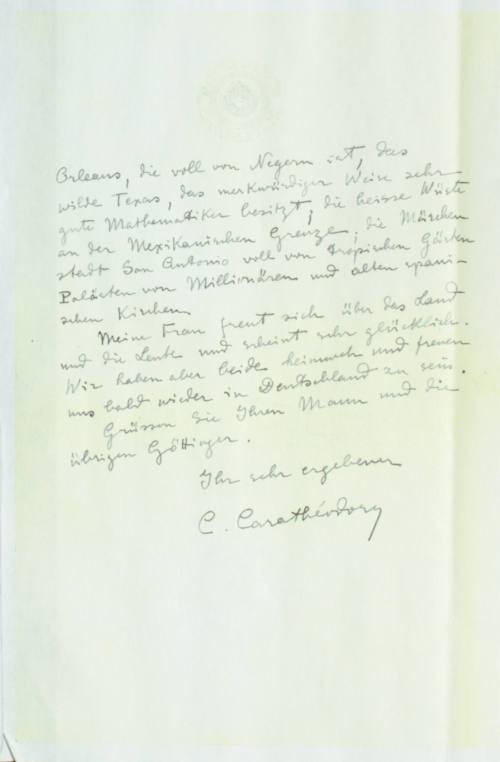 Orleans, die voll von Negern ist, das
wilde Texas, das merkwürdiger Weise sehr
gute Mathematiker besitzt, die heisse Wüste
an der Mexikanischen Grenze, die Märchen
stadt San Antonio voll von tropischen Gärten
Palästen von Millionären und alten spani-
schen Kirchen.
Meine Frau freut sich über das Land
und die Leute und scheint sehr glücklich.
Wir haben aber beide heimweh und freuen
uns bald wieder in Deutschland zu sein.
Grüssen Sie Ihren Mann und die
übrigen Göttinger.
Ihr sehr ergebener
C. Carathéodory